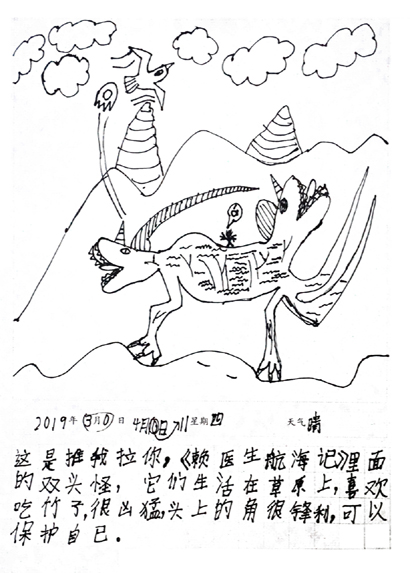 2019年 3月0日 4月 11 星期四 天气 晴
这是推我拉你,《赖医生航海记》里面
的双头怪, 它们生活在草原上,喜欢
吃竹子,很凶猛,头上的角很锋利,可以
保护自己.